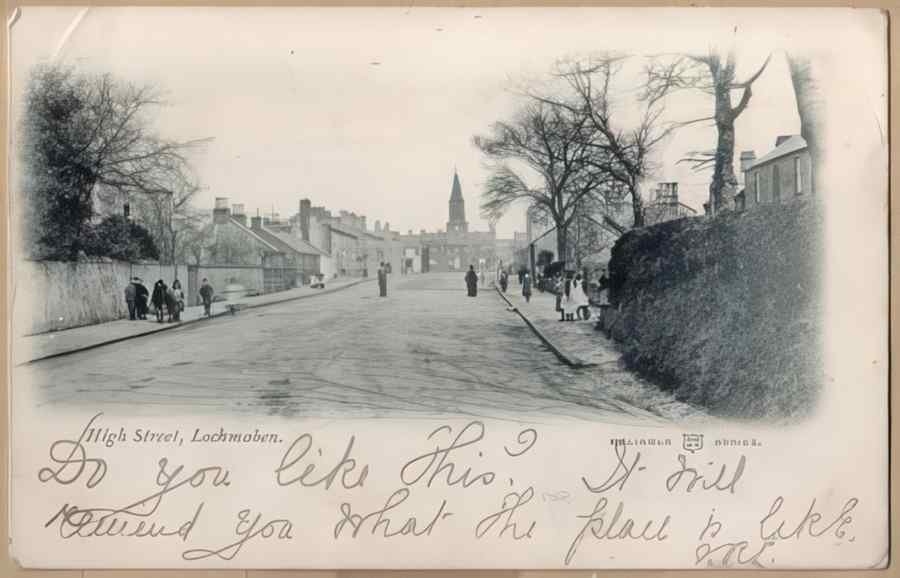 High Street, Lochmaben.
RELIABLE SERIES.
Do you like this? It will
remind you what the place is like.